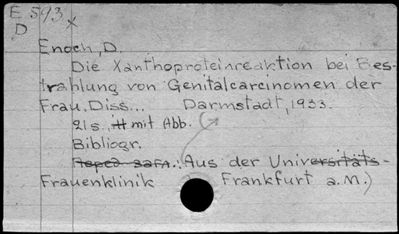 E 593 x
D
Enoch, D.
Die Xanthoproteinreaktion bei Bes-
trahlung von Genitalcarcinomen der
Frau. Diss... Darmstadt, 1933.
21 s., mit Abb.
Bibliogr.
Перед загл.: Aus der Universitäts-
Frauenklinik Frankfurt a. M.)